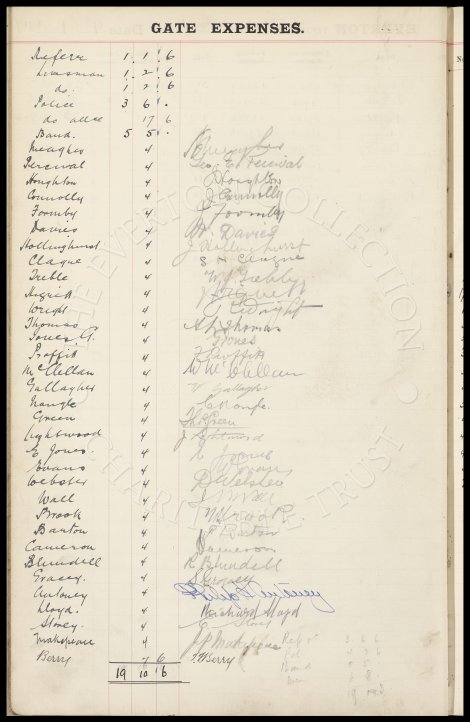 GATE EXPENSES.
Referee 1 1 6
Linesman 1 2 6
do. 1 2 6
Police 3 6 .
do allce 17 6
Band. 5 5 .
Meagher 4
Percival 4 Geo. E. Percival
Houghton 4 Houghton
Connolly 4 J Connolly
Formby 4 Formby
Davies 4 W. Davies
Hollinghurst 4 J Hollinghurst
Clague 4 S H Clague
Treble 4
4
Wright 4 Wright
Thomas 4 Thomas
Jones. G. 4 Jones
Proffitt 4 Proffitt
McClellan 4 W McClellan
Gallagher 4 Gallagher
Nangle 4
Green 4 Green
Lightwood 4 J Lightwood
E Jones. 4 E Jones
Evans 4 Evans
Webster 4 Webster
Wall 4
Brook 4
Banton 4 Banton
Cameron 4 Cameron
Blundell 4 R Blundell
Gracey. 4 Gracey
Antoney 4 Antoney
Lloyd. 4 Richard Lloyd
Storey. 4 Storey
Makepeace 4 J P Makepeace
Berry 7 6 Berry
19 10 6
THE EVERTON COLLECTION CHARITABLE TRUST